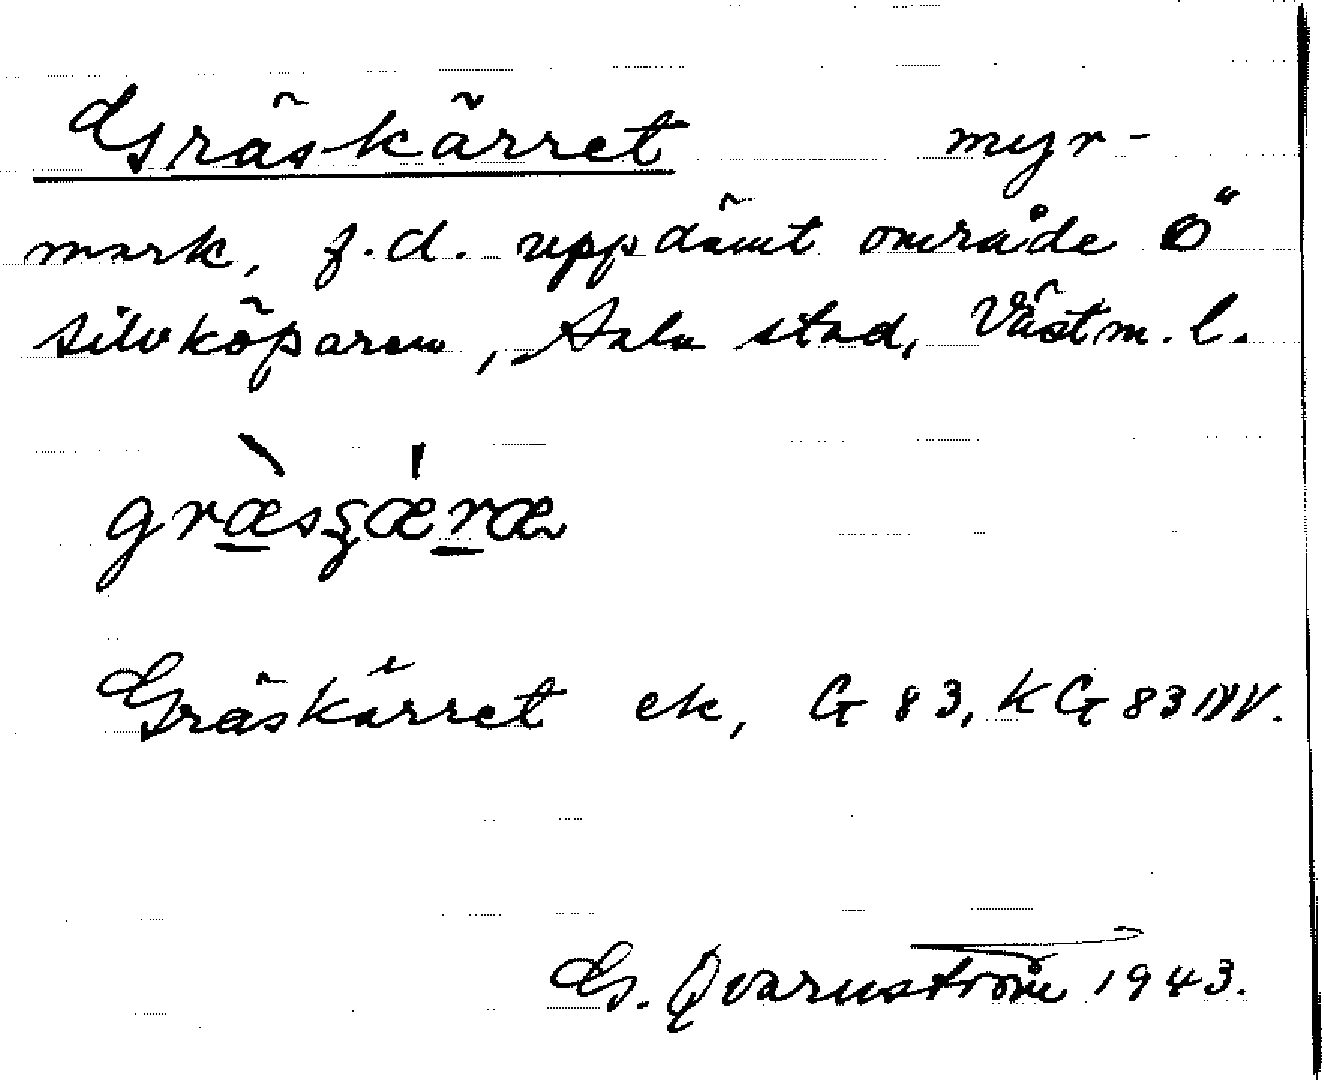 Gräskärret myr-
mark, f.d. uppdämt område Ö
Silvköparen, Sala stad, Västm. l.
græsʒæræ
Gräskärret ek, G 83, KG 83 NV.
G. Qvarnström 1943.